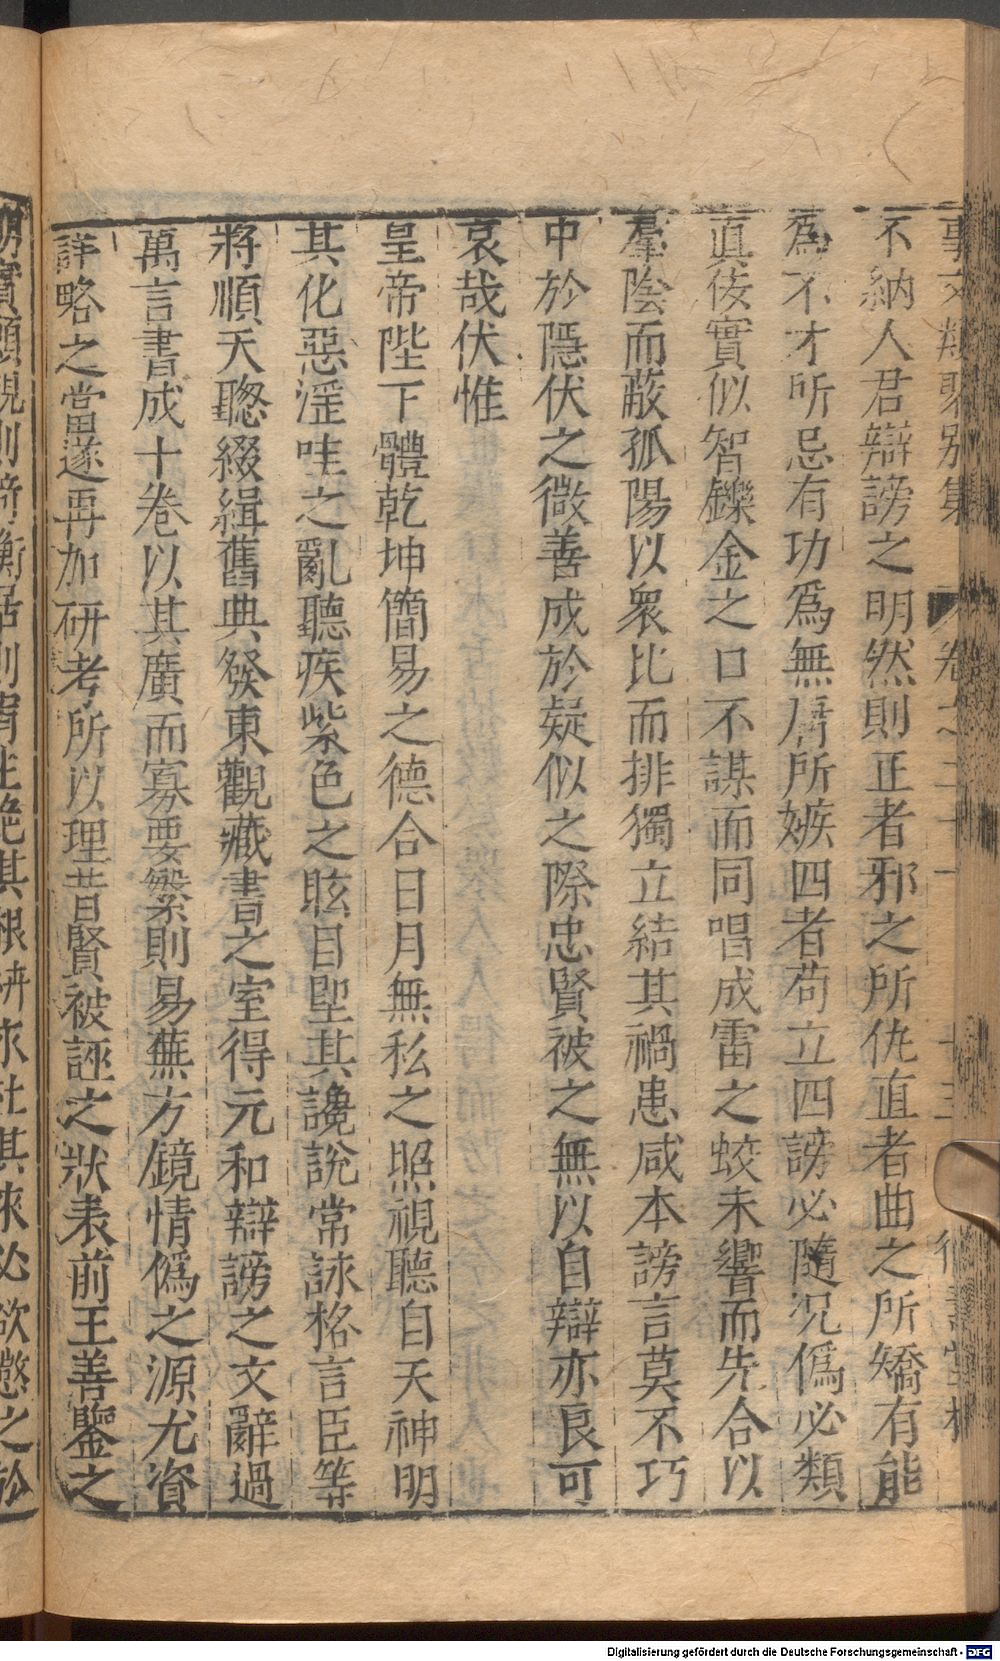 事文類聚別集 卷之二十一 十三 德壽堂梓
不納人君辯謗之明然則正者邪之所仇直者曲之所矯有能
爲不才所忌有功爲無庸所嫉四者苟立四謗必隨況僞必類
眞佞實似智鑠金之口不謀而同唱成雷之蛟未響而先合以
羣陰而蔽孤陽以衆比而排獨立結其禍患咸本謗言莫不巧
中於隱伏之微善成於疑似之際忠賢被之無以自辯亦良可
哀哉伏惟
皇帝陛下體乾坤簡易之德合日月無私之照視聽自天神明
其化惡淫哇之亂聽疾紫色之眩目堲其讒說常詠格言臣等
將順天聰綴緝舊典發東觀藏書之室得元和辯謗之文辭過
萬言書成十卷以其廣而寡要繁則易蕪方鏡情僞之源尤資
詳略之當遂再加硏考所以理昔賢被誣之狀表前王善鑒之
居則 絶其根 其來必欲 之於
Digitalisierung gefördert durch die Deutsche Forschungsgemeinschaft - DFG